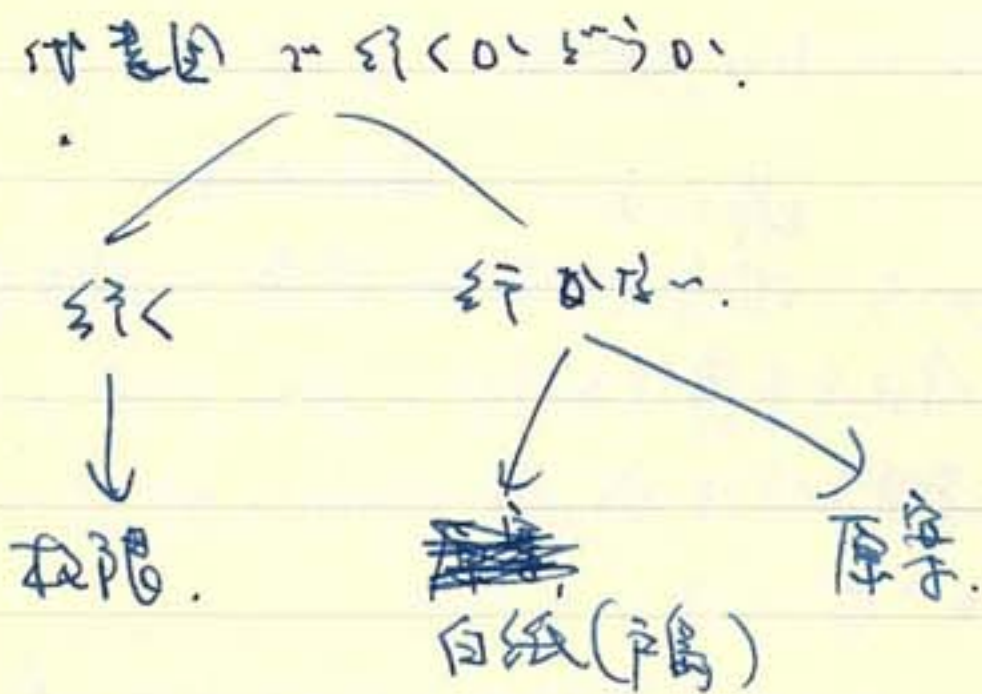 代表団で行くかどうか.
行く
行かない.
权限.
白紙(戸島)
原案.